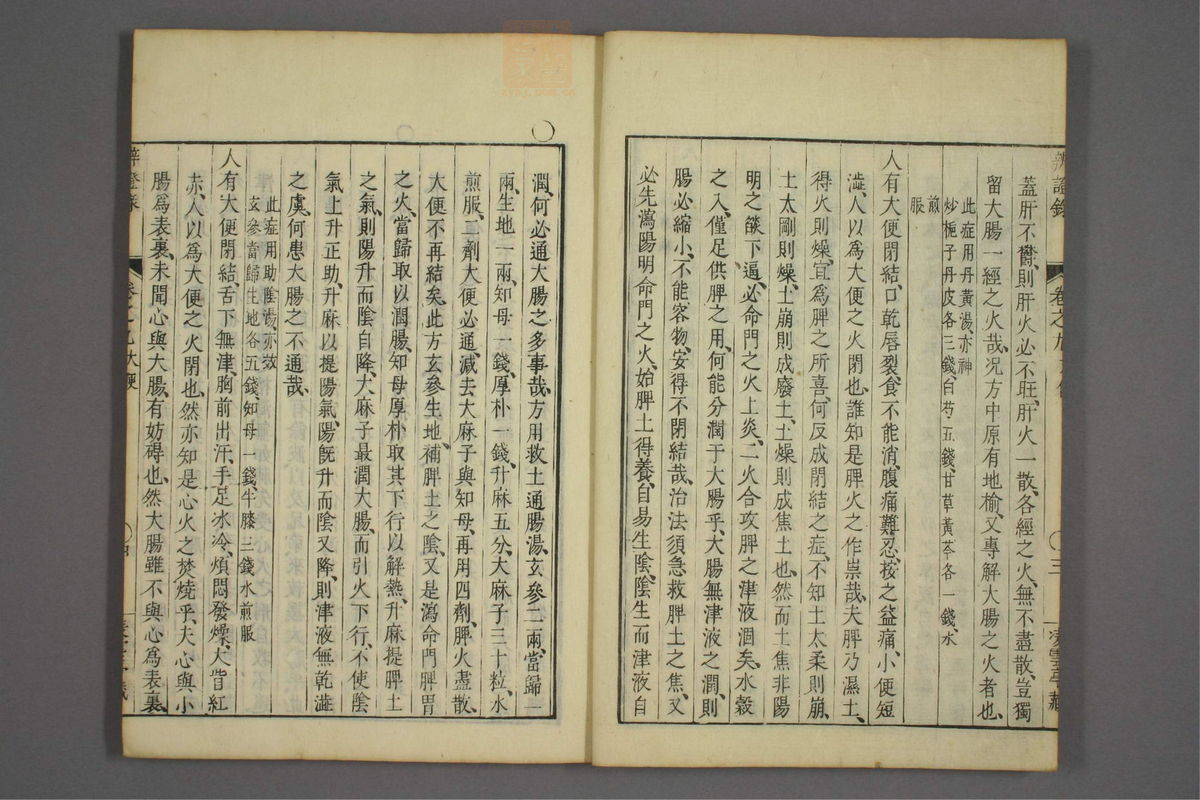 蓋肝不鬱、則肝火必不旺、肝火一散、各經之火、無不盡散、豈獨
留大腸一經之火哉、况方中原有地榆、又專解大腸之火者也、
此症用丹黃湯、亦神
炒梔子丹皮各三錢、白芍五錢、甘草黃芩各一錢、水
煎服
人有大便閉結、口乾唇裂、食不能消、腹痛難忍、按之益痛、小便短
澁、人以爲大便之火閉也、誰知是脾火之作祟哉、夫脾乃濕土、
得火則燥、宜爲脾之所喜、何反成閉結之症、不知土太柔則崩、
土太剛則燥、土崩則成廢土、土燥則成焦土也、然而土焦非陽
明之燄下逼、必命門之火上炎、二火合攻、脾之津液涸矣、水穀
之入、僅足供脾之用、何能分潤于大腸乎、大腸無津液之潤、則
腸必縮小、不能容物、安得不閉結哉、治法須急救脾土之焦、又
必先瀉陽明命門之火、始脾土得養、自易生陰、陰生而津液自
辨證錄
卷之九
三
潤、何必通大腸之多事哉、方用救土通腸湯、玄參二兩、當歸一
兩、生地一兩、知母一錢、厚朴一錢、升麻五分、大麻子三十粒、水
煎服、二劑大便必通、減去大麻子與知母、再用四劑、脾火盡散、
大便不再結矣、此方玄參生地、補脾土之陰、又是瀉命門脾胃
之火、當歸取以潤腸、知母厚朴取其下行以解熱、升麻提脾土
之氣、則陽升而陰自降、大麻子最潤大腸、而引火下行、不使陰
氣上升、正助升麻以提陽氣、陽既升而陰又降、則津液無乾澁
之虞、何患大腸之不通哉、
此症用助陰湯、亦效
玄參當歸生地各五錢、知母一錢、牛膝三錢、水煎服
人有大便閉結、舌下無津、胸前出汗、手足冰冷、煩悶發燥、大眥紅
赤、人以爲大便之火閉也、然亦知是心火之焚燒乎、夫心與小
腸爲表裏、未聞心與大腸、有妨碍也、然大腸雖不與心爲表裏、
大便